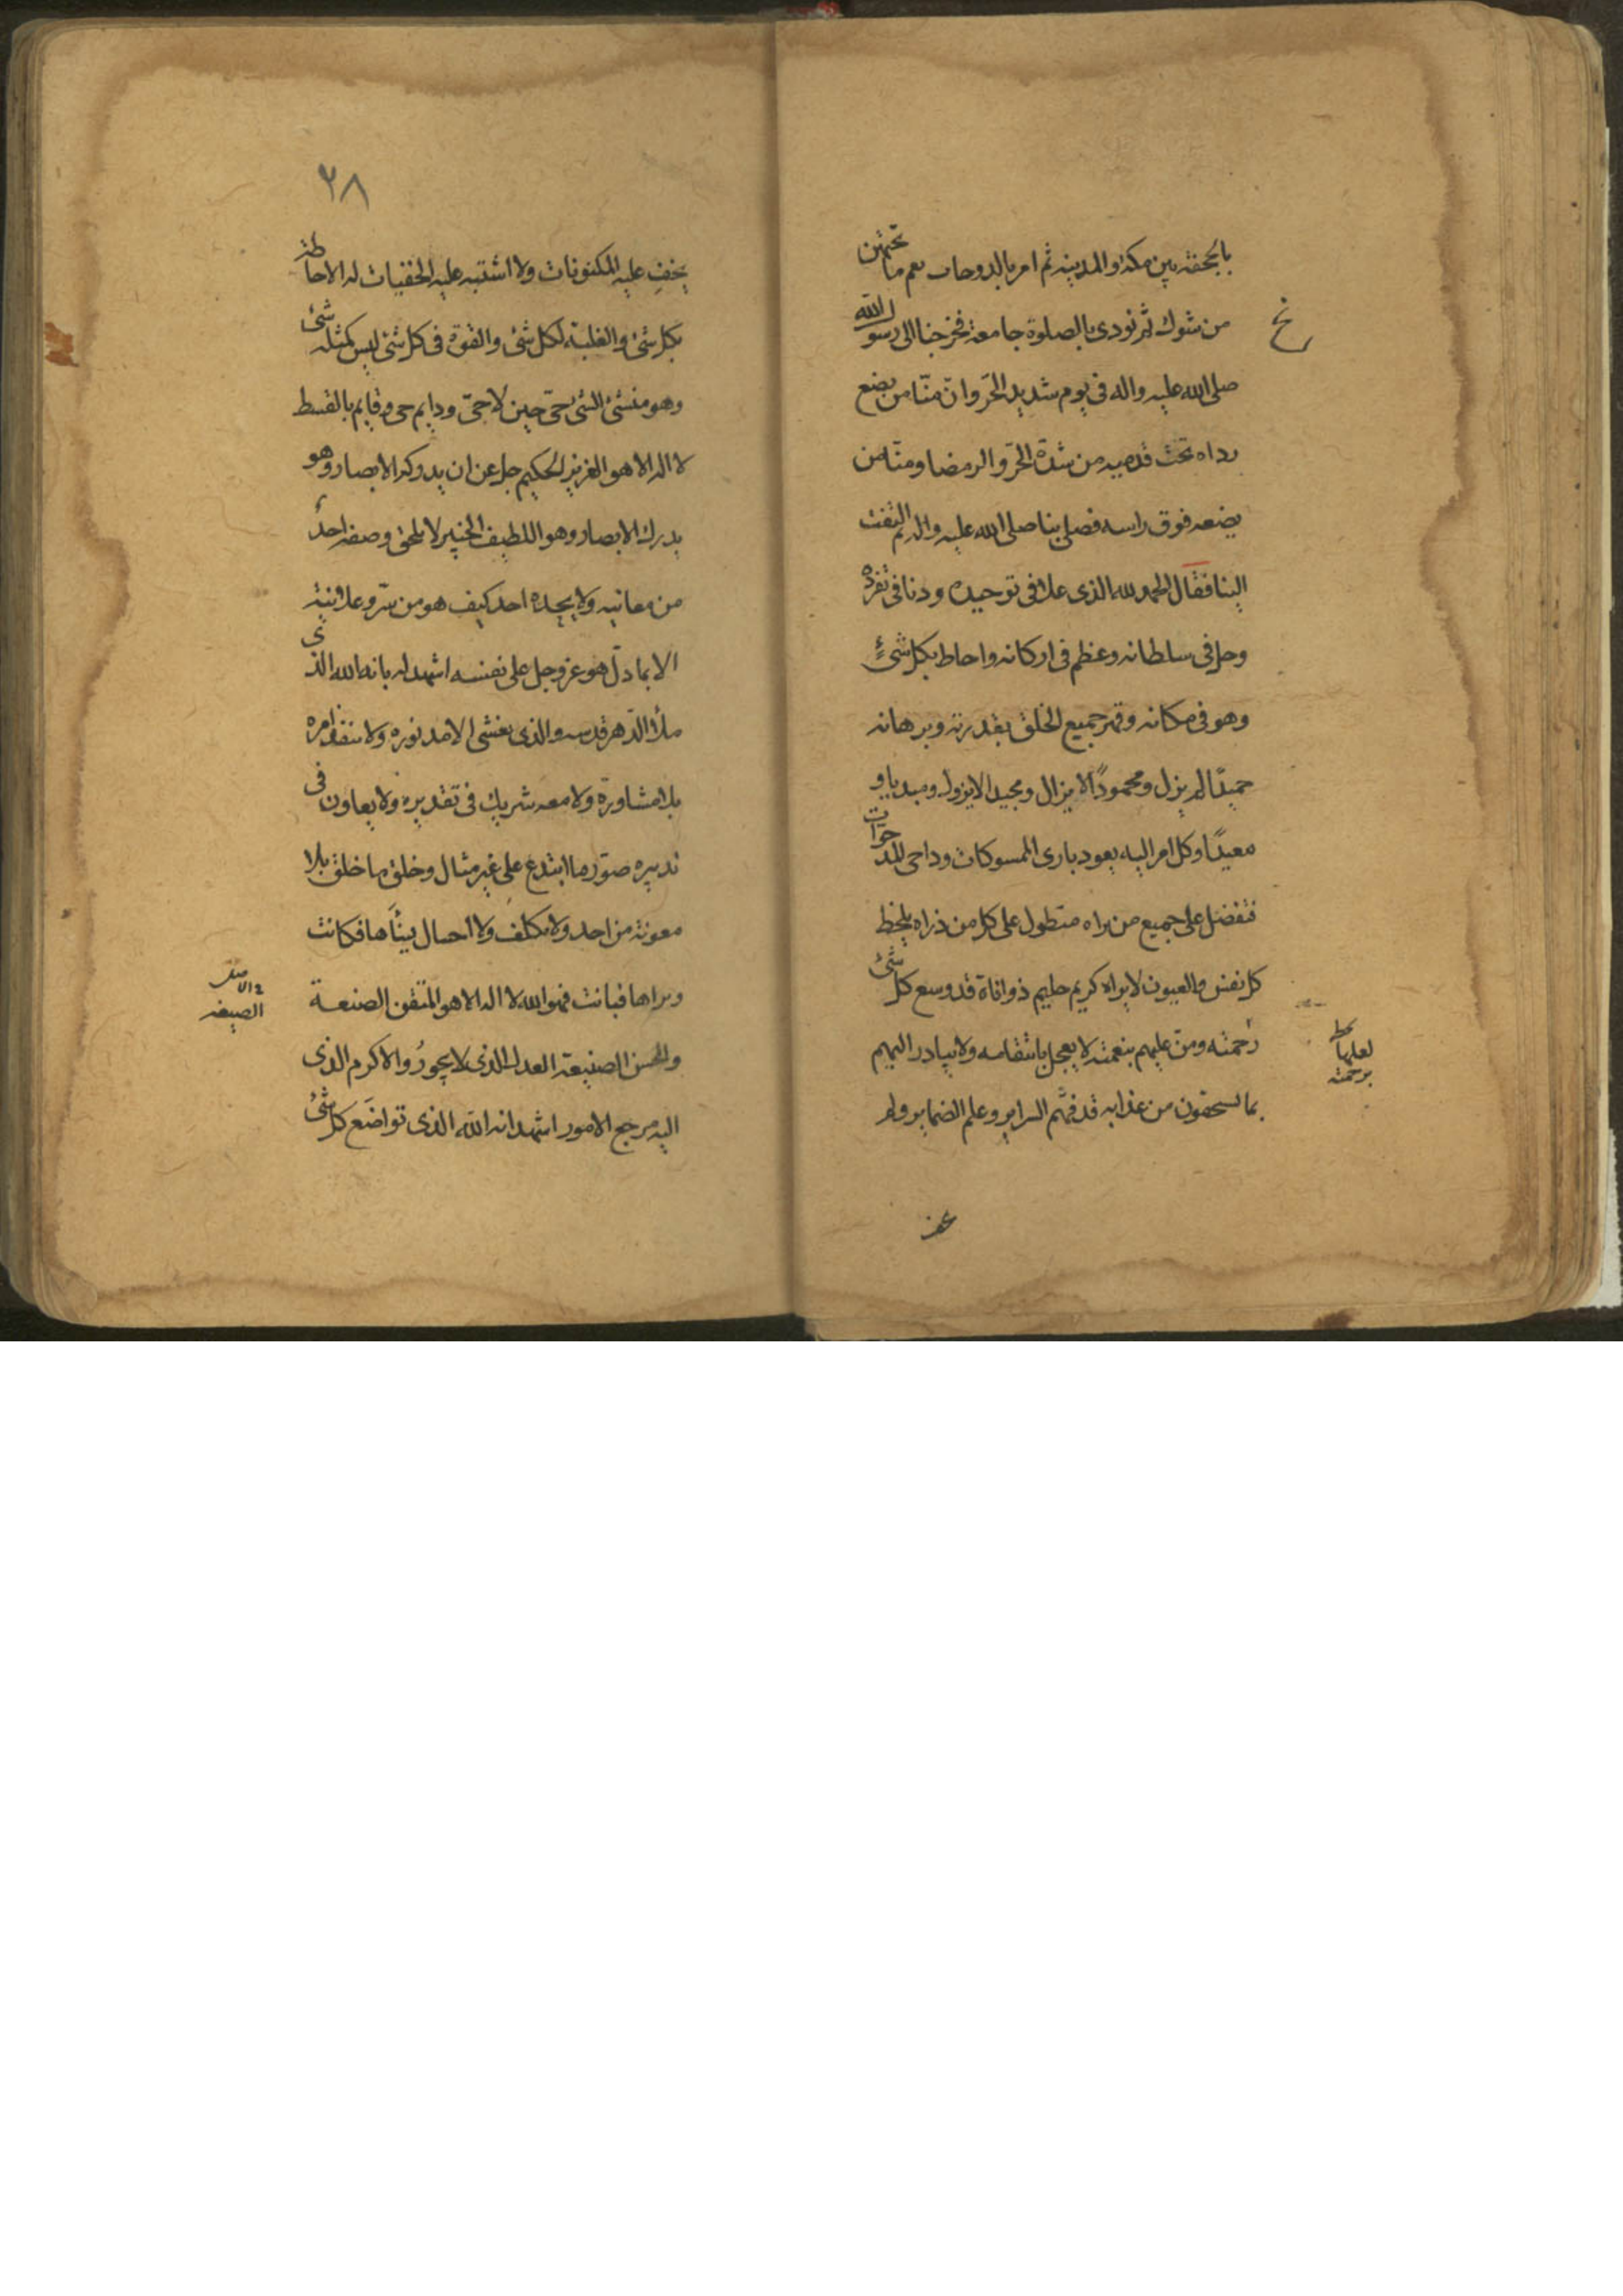 بالجحفة بين مكة والمدينة ثم امر بالدوحات فقم ما تحتهن
من شوك ثم نودى بالصلوة جامعة فخرجنا الى رسول الله
صلى الله عليه واله فى يوم شديد الحرّ وانّ منّا من يضع
رداه تحت قدميه من شدّة الحرّ والرمضا ومنّا من
يضعه فوق راسه فصلى بنا صلى الله عليه واله ثم التفت
الينا فقال الحمد لله الذى علا فى توحيده ودنا فى تفرده
وجل فى سلطانه وعظم فى اركانه واحاط بكل شئٍ
وهو فى مكانه وقهر جميع الخلق بقدرته وبرهانه
حميدًا لم يزل ومحمودًا لا يزال ومجيدا لا يزول ومبديا و
معيدًا وكل امر اليه يعود بارى المسموكات وداحى المدحوّات
متفضل على جميع من براه متطول على كل من ذراه يلحظ
كل نفس والعيون لا يراه كريم حليم ذو اناة قد وسع كل شئ
رحمته ومن عليهم بنعمته لا يعجل بانتقامه ولا يبادر اليهم
بما يستحقون من عذابه قد فهّم السراير وعلم الضماير ولم
لعلها
برحمته
٢٨
يخفِ عليه المكنونات ولا اشتبه عليه الخفيات له الاحاطة
بكل شئ والغلبة لكل شئ والقوة فى كل شئ ليس كمثله شئ
وهو منشئ الشئ حىّ حين لا حىّ ودايم حى وقايم بالقسط
لا اله الا هو العزيز الحكيم جل عن ان يدركه الابصار وهو
يدرك الابصار وهو اللطيف الخبير لا يلحق وصفه احدٌ
من معانيه ولا يحده احد كيف هو من سرّ وعلانية
الا بما دلّ هو عز وجل على نفسه اشهد له بانه الله الذى
ملأ الدّهر قدسه والذى يغشى الامد نوره ولا ينفذ امره
بلا مشاورة ولا معه شريك فى تقديره ولا يعاون فى
تدبيره صوّر ما ابتدع على غير مثال وخلق ما خلق بلا
معونة من احد ولا تكلف ولا احتيال فكانت
وبراها فبانت فهو الله لا اله الا هو المتقن الصنعة
والحسن الصنيعة العدل الذى لا يجورُ والاكرم الذى
اليه مرجع الامور اشهد انه الله الذى تواضَع كل شئ
الصيغه